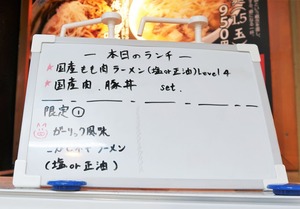 1.5玉
950円
― 本日のランチ ―
* 国産もも肉ラーメン(塩or正油)Level 4
* 国産肉.豚丼 set.
限定①
ガーリック風味
ラーメン
(塩or正油)